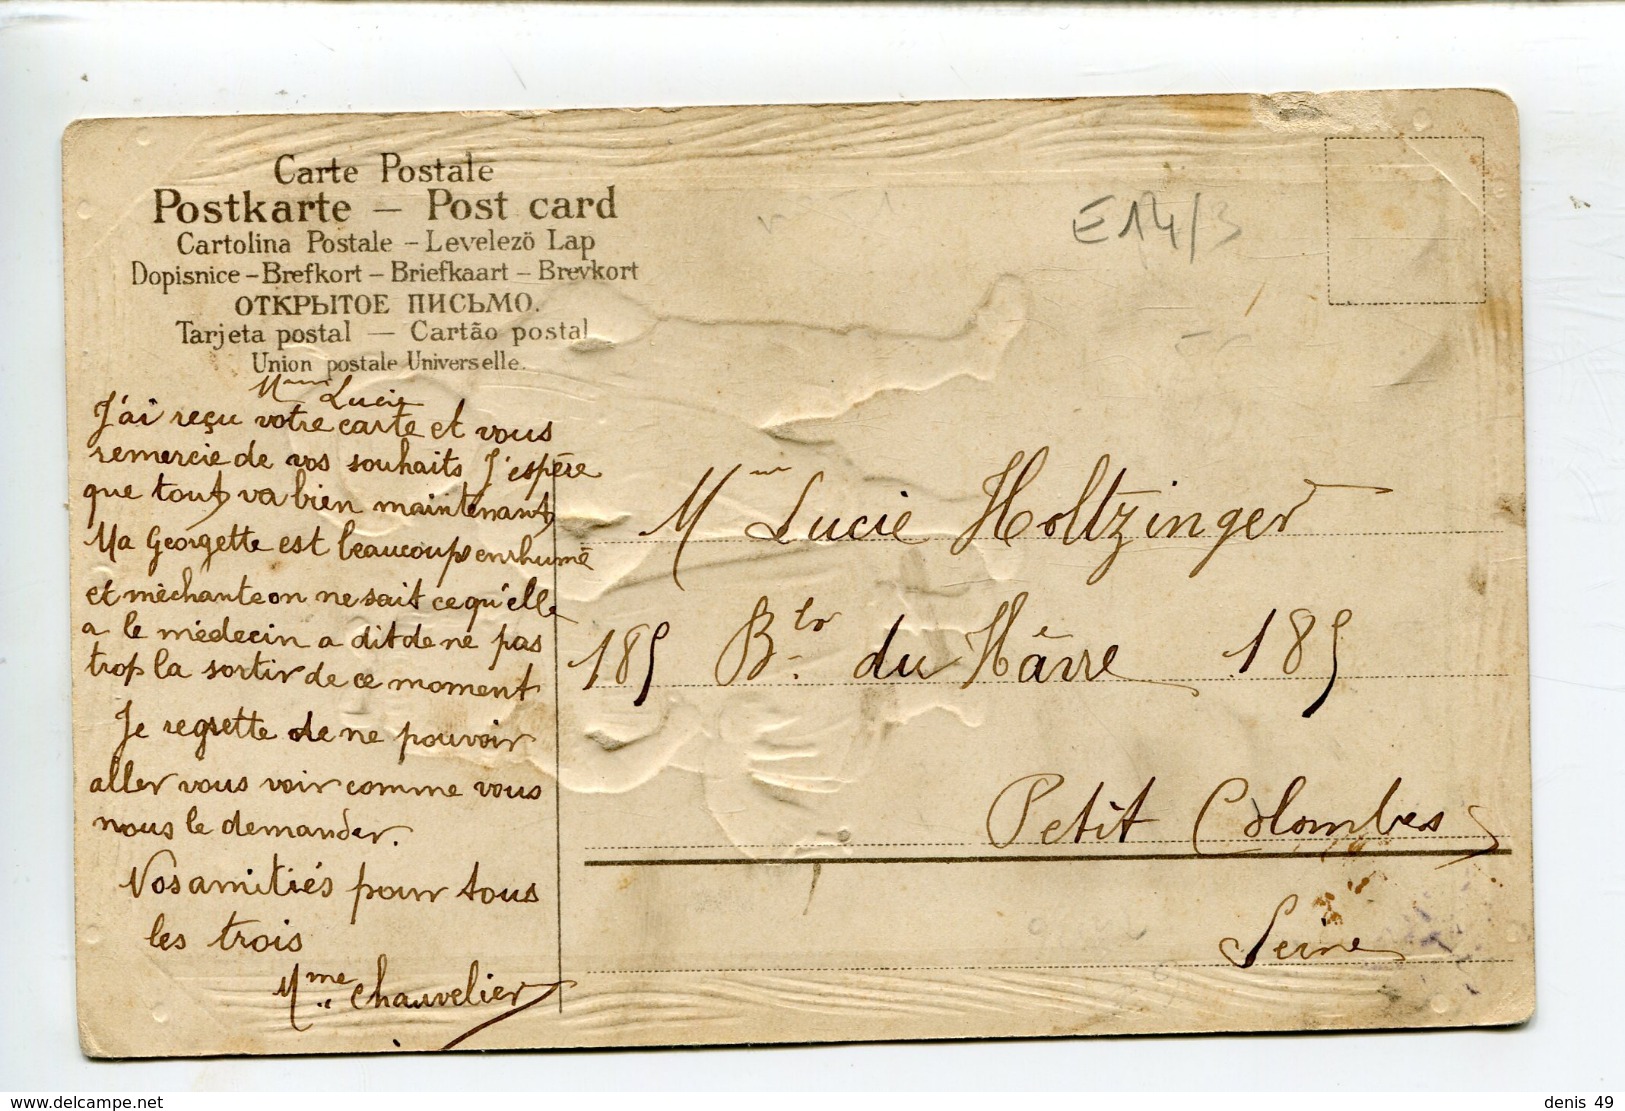 Carte Postale
Postkarte – Post card
Cartolina Postale – Levelezö Lap
Dopisnice – Brefkort – Briefkaart – Brevkort
ОТКРЫТОЕ ПИСЬМО.
Tarjeta postal — Cartão postal
Union postale Universelle.
E14/3
Mme Lucie
J'ai reçu votre carte et vous
remercie de vos souhaits J'espère
que tout va bien maintenant
Ma Georgette est beaucoup enrhumé
et méchante on ne sait ce qu'elle
a le médecin a dit de ne pas
trop la sortir de ce moment
Je regrette de ne pouvoir
aller vous voir comme vous
nous le demander.
Nos amitiés pour tous
les trois
Mme Chauvelier
Mme Lucie Holtzinger
185 Bler du Hâvre 185
Petit Colombes
Seine
delcampe.net
denis 49